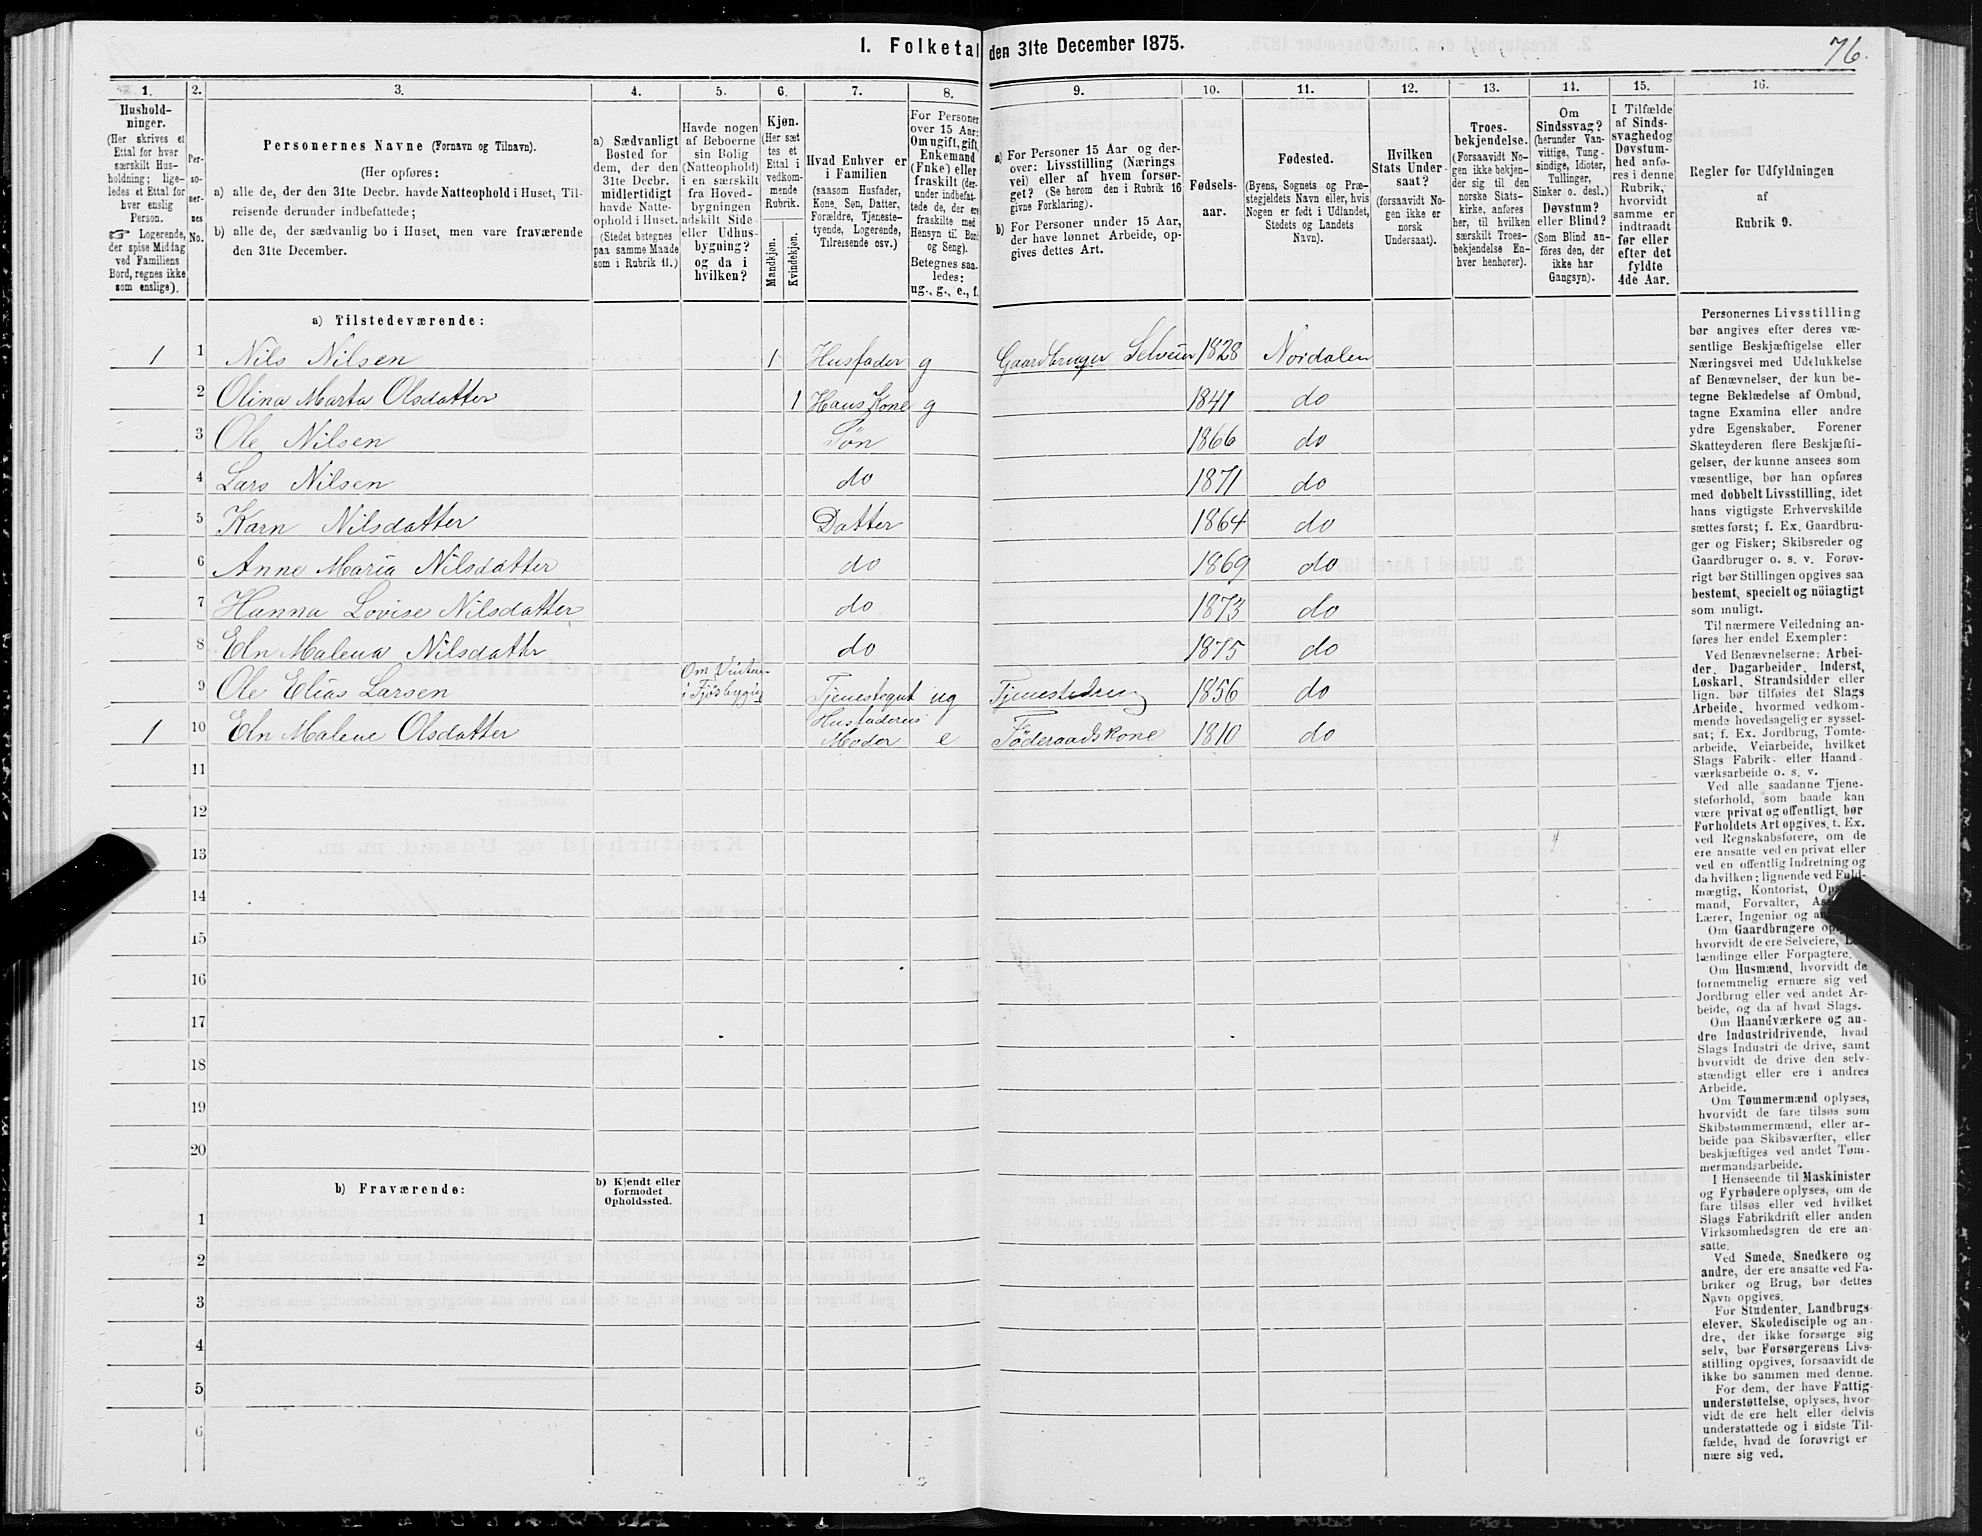 I. Folketal den 31te December 1875.
76.
1.
2.
3.
4.
5.
6.
7.
8.
9.
10.
11.
12.
13.
14.
15.
16.
Hushold-
ninger.
(Her skrives et
Ettal for hver
særskilt Hus-
holdning; lige-
ledes et Ettal for
hver enslig
Person.
☞ Logerende,
der spise Middag
ved Familiens
Bord, regnes ikke
som enslige).
Per-
so-
ner-
nes
No.
Personernes Navne (Fornavn og Tilnavn).
(Her opføres:
a) alle de, der den 31te Decbr. havde Natteophold i Huset, Til-
reisende derunder indbefattede;
b) alle de, der sædvanlig bo i Huset, men vare fraværende
den 31te December.
a) Sædvanligt
Bosted for
dem, der den
31te Decbr.
midlertidigt
havde Natte-
ophold i Huset.
(Stedet betegnes
paa samme Maade
som i Rubrik 11.)
Havde nogen
af Beboerne
sin Bolig
(Natteophold)
i en særskilt
fra Hoved-
bygningen
adskilt Side-
eller Udhus-
bygning?
og da i
hvilken?
Kjøn.
(Her sæt-
tes et
Ettal i
vedkom-
mende
Rubrik.
Mandkjøn.
Kvindekjøn.
Hvad Enhver er
i Familien
(saasom Husfader,
Kone, Søn, Datter,
Forældre, Tjeneste-
tyende, Logerende,
Tilreisende osv.)
For Personer
over 15 Aar:
Om ugift, gift,
Enkemand
(Enke) eller
fraskilt (der-
under indbefat-
tede de, der ere
fraskilte med
Hensyn til Bord
og Seng).
Betegnes saa-
ledes:
ug., g., e., f.
a) For Personer 15 Aar og der-
over: Livsstilling (Nærings-
vei) eller af hvem forsør-
get? (Se herom den i Rubrik 16
givne Forklaring).
b) For Personer under 15 Aar,
der have lønnet Arbeide, op-
gives dettes Art.
Fødsels-
aar.
Fødested.
(Byens, Sognets og Præ-
stegjeldets Navn eller, hvis
Nogen er født i Udlandet,
Stedets og Landets
Navn).
Hvilken
Stats Under-
saat?
(forsaavidt No-
gen ikke er
norsk
Undersaat).
Troes-
bekjendelse.
(Forsaavidt No-
gen ikke bekjen-
der sig til den
norske Stats-
kirke, anføres
her, til hvilken
særskilt Troes-
bekjendelse En-
hver henhører).
Om
Sindssvag?
(herunder Van-
vittige, Tung-
sindige, Idioter,
Tullinger,
Sinker o. desl.)
Døvstum?
eller Blind?
(Som Blind an-
føres den, der
ikke har
Gangsyn).
I Tilfælde
af Sinds-
svaghed og
Døvstum-
hed anfø-
res i denne
Rubrik,
hvorvidt
samme er
indtraadt
før eller
efter det
fyldte
4de Aar.
Regler før Udfyldningen
af
Rubrik 9.
a) Tilstedeværende:
1 1 Nils Nilsen 1 Husfader g Gaardbruger Selveier 1828 Nordalen
2 Olina Marta Olsdatter 1 Hans Kone g 1841 do
3 Ole Nilsen Søn 1866 do
4 Lars Nilsen do 1871 do
5 Karn Nilsdatter Datter 1864 do
6 Anne Maria Nilsdatter do 1869 do
7 Hanna Lovise Nilsdatter do 1873 do
8 Eln Malena Nilsdatter do 1875 do
9 Ole Elias Larsen Om Vinteren i Fjøsbygning Tjenestegut ug Tjenestedreng 1856 do
1 10 Eln Malene Olsdatter Husfaderens Moder e Føderaadskone 1810 do
11
12
13
14
15
16
17
18
19
20
b) Fraværende:
b) Kjendt eller
formodet
Opholdssted.
1
2
3
4
5
6
Personernes Livsstilling
bør angives efter deres væ-
sentlige Beskjæftigelse eller
Næringsvei med Udelukkelse
af Benævnelser, der kun be-
tegne Beklædelse af Ombud,
tagne Examina eller andre
ydre Egenskaber. Forener
Skatteyderen flere Beskjæfti-
gelser, der kunne ansees som
væsentlige, bør han opføres
med dobbelt Livsstilling, idet
hans vigtigste Erhvervskilde
sættes først; f. Ex. Gaardbru-
ger og Fisker; Skibsreder og
Gaardbruger o. s. v. Forøv-
rigt bør Stillingen opgives saa
bestemt, specielt og nöiagtigt
som muligt.
Til nærmere Veiledning an-
føres her endel Exempler:
Ved Benævnelserne: Arbei-
der, Dagarbeider, Inderst,
Løskarl, Strandsidder eller
lign. bør tilføies det Slags
Arbeide, hvormed vedkom-
mende hovedsagelig er syssel-
sat; f. Ex. Jordbrug, Tomte-
arbeide, Veiarbeide, hvilket
Slags Fabrik- eller Haand-
værksarbeide o. s. v.
Ved alle saadanne Tjene-
steforhold, som baade kan
være privat og offentligt, bør
Forholdets Art opgives, t. Ex.
ved Regnskabsførere, om de
ere ansatte ved en privat eller
ved en offentlig Indretning og
da hvilken; lignende ved Fuld-
mægtig, Kontorist,
mand, Forvalter,
Lærer, Ingeniør og
Om Gaardbrugere
hvorvidt de ere Selveiere,
lændinge eller Forpagtere.
Om Husmænd, hvorvidt de
fornemmelig ernære sig ved
Jordbrug eller ved andet Ar-
beide, og da af hvad Slags.
Om Haandværkere og an-
dre Industridrivende, hvad
Slags Industri de drive, samt
hvorvidt de drive den selv-
stændigt eller ere i andres
Arbeide.
Om Tømmermænd oplyses,
hvorvidt de fare tilsøs som
Skibstømmermænd, eller ar-
beide paa Skibsværfter, eller
beskjæftiges ved andet Tøm-
mermandsarbeide.
I Henseende til Maskinister
og Fyrbødere oplyses, om de
fare tilsøs eller ved hvilket
Slags Fabrikdrift eller anden
Virksomhedsgren de ere an-
satte.
Ved Smede, Snedkere og
andre, der ere ansatte ved Fa-
briker og Brug, bør dettes
Navn opgives.
For Studenter, Landbrugs-
elever, Skoledisciple og an-
dre, der ikke forsørge sig
selv, bør Forsørgerens Livs-
stilling opgives, forsaavidt de
ikke bo sammen med denne.
For dem, der have Fattig-
understøttelse, oplyses, hvor-
vidt de ere helt eller delvis
understøttede og i sidste Til-
fælde, hvad de forøvrigt er-
nære sig ved.